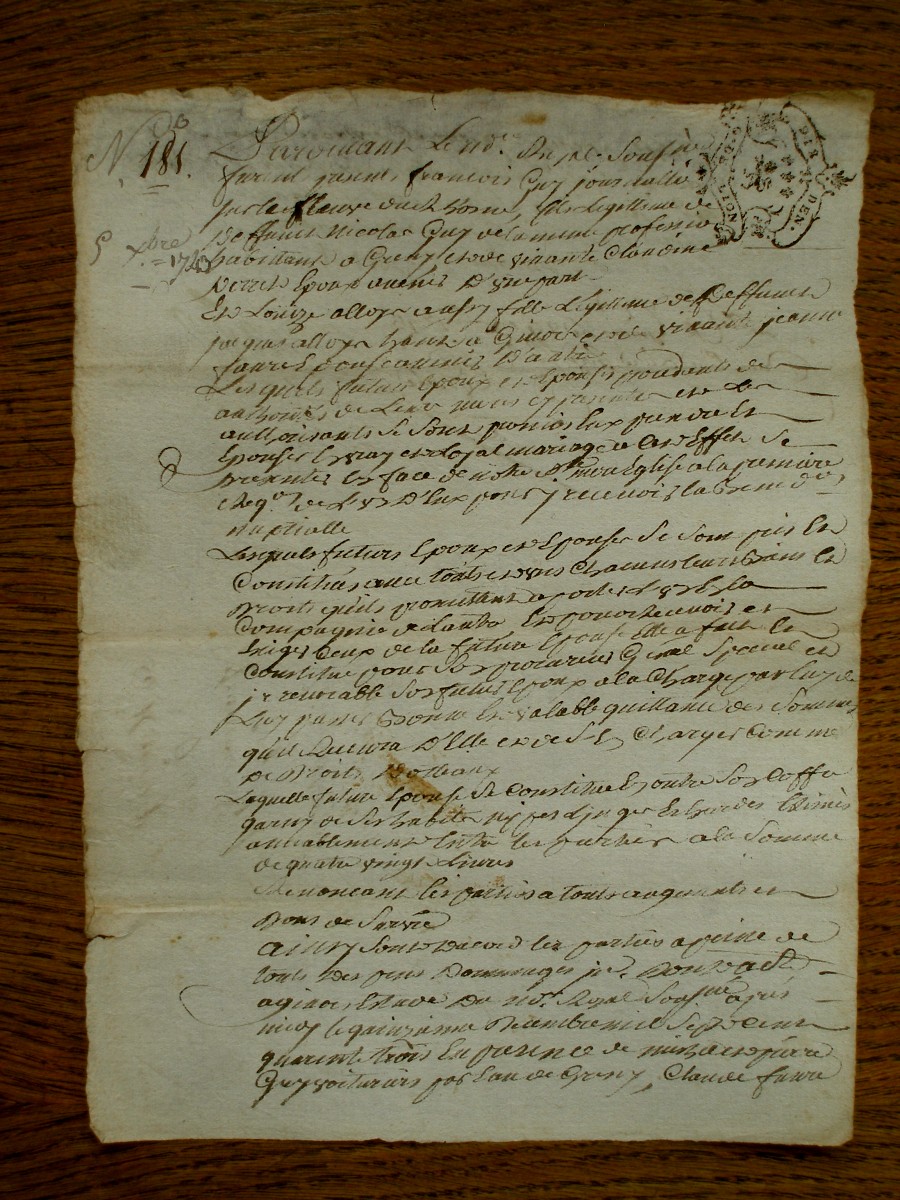 N° 181.
xbre 1743
GEN. DIX DEN.
Pardevant Le no.re Royal Soussigné
furent présents francois Guy journallier
sur le fleuve du Rhosne, fils Legitime de
Deffunct Nicolas Guy de la meme profession
habitant a Grigny et de vivante Claudine
Epoux avenir D'une part
Et Louize alloys aussy fille Legitime de Deffunct
jacques alloys a et de vivante jeanne
faure Epouse avenir D'autre
Lesquels futurs Epoux et Epouse procedants de
authorités de Leurs meres cy presentes et Les
authorisants se sont promis Eux prendre Et
Epouser En vray et Loyal mariage a Cet Effet Se
presenter En face de notre S.te mere Eglise a la premiere
Req.on de L'un D'Eux pour y recevoir la Benedon
nuptialle
Lesquels futurs Epoux et Epouse Se Sont pris Et
Constitués avec touts et uns Chacuns leurs biens Et
Droits qu'ils promettent aporter L'un En La
Compagnie de Lautre Et pour recevoir et
Exiger Ceux de la future Epouse Elle a fait Et
Constitué pour Son procureur General Special et
jrrevocable Son futur Epoux a la Charge par luy de
Luy passer Bonne Et valable quittance des Sommes
qu'il Recevra D'Elle et de Se Charger Comme
de Droits Dotteaux
Laquelle future Epouse Se Constitue En outre Son Coffre
garny de Ses habits nipes Linges Et hardes Estimés
amiablement Entre les parties a la Somme
de quatre vingt Livres
Renoncant les parties a touts augments et
Dons de Survie
ainsy Sont Dacord les parties a peine de
touts Despens Dommages
a Etude Du no.re Royal Sous.né apres
midy le quinzieme Decembre mil Sept Cent
quarante trois En presence de et pierre
Guy voituriers par Eau de Grigny, Claude faure